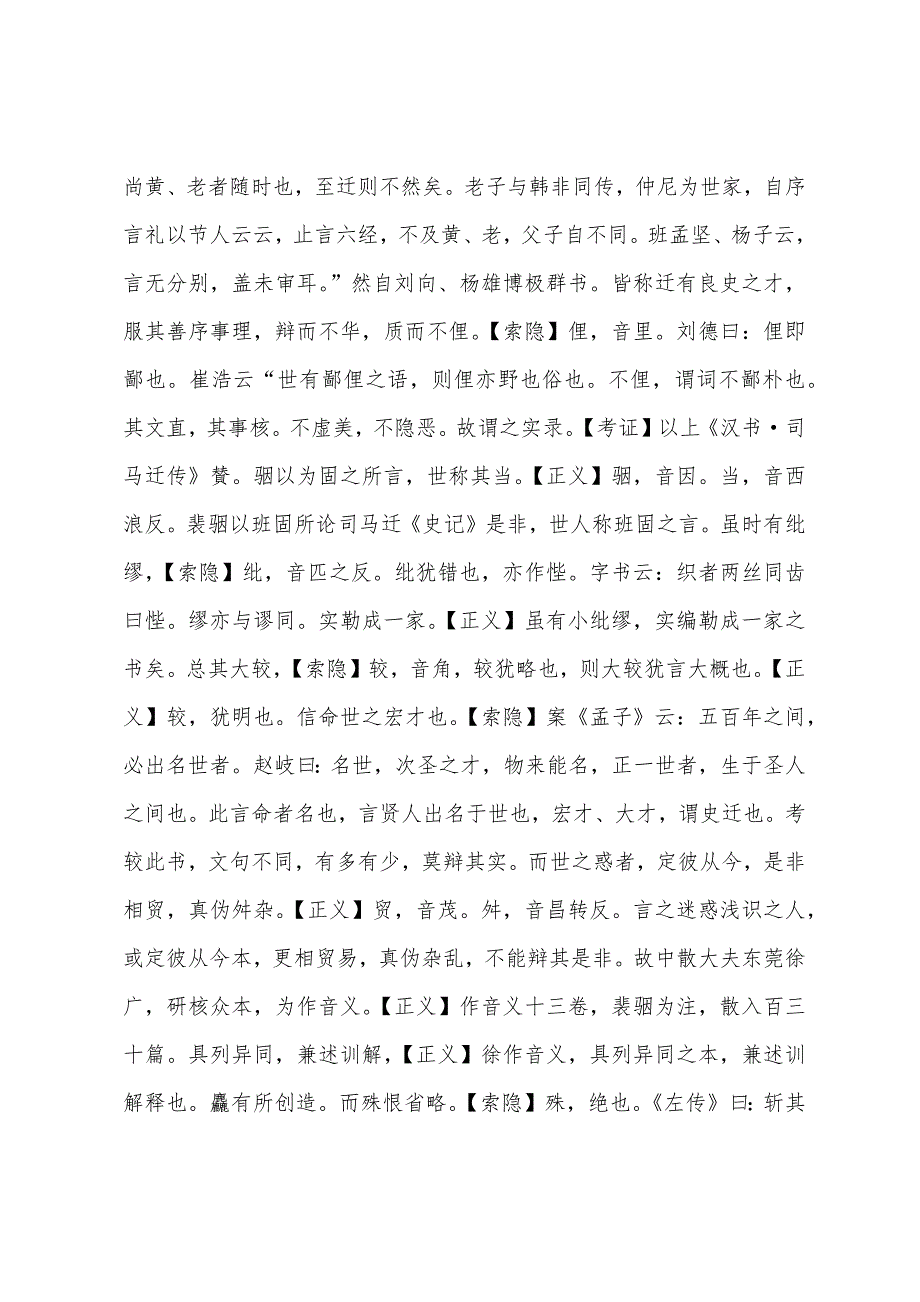 尚黄、老者随时也，至迁则不然矣。老子与韩非同传，仲尼为世家，自序
言礼以节人云云，止言六经，不及黄、老，父子自不同。班孟坚、杨子云，
言无分别，盖未审耳。”然自刘向、杨雄博极群书。皆称迁有良史之才，
服其善序事理，辩而不华，质而不俚。【索隐】俚，音里。刘德曰：俚即
鄙也。崔浩云“世有鄙俚之语，则俚亦野也俗也。不俚，谓词不鄙朴也。
其文直，其事核。不虚美，不隐恶。故谓之实录。【考证】以上《汉书·司
马迁传》賛。骃以为固之所言，世称其当。【正义】骃，音因。当，音西
浪反。裴骃以班固所论司马迁《史记》是非，世人称班固之言。虽时有纰
缪，【索隐】纰，音匹之反。纰犹错也，亦作悂。字书云：织者两丝同齿
曰悂。缪亦与谬同。实勒成一家。【正义】虽有小纰缪，实编勒成一家之
书矣。总其大较，【索隐】较，音角，较犹略也，则大较犹言大概也。【正
义】较，犹明也。信命世之宏才也。【索隐】案《孟子》云：五百年之间，
必出名世者。赵岐曰：名世，次圣之才，物来能名，正一世者，生于圣人
之间也。此言命者名也，言贤人出名于世也，宏才、大才，谓史迁也。考
较此书，文句不同，有多有少，莫辩其实。而世之惑者，定彼从今，是非
相贸，真伪舛杂。【正义】贸，音茂。舛，音昌转反。言之迷惑浅识之人，
或定彼从今本，更相贸易，真伪杂乱，不能辩其是非。故中散大夫东莞徐
广，研核众本，为作音义。【正义】作音义十三卷，裴骃为注，散入百三
十篇。具列异同，兼述训解，【正义】徐作音义，具列异同之本，兼述训
解释也。麤有所创造。而殊恨省略。【索隐】殊，绝也。《左传》曰：斩其